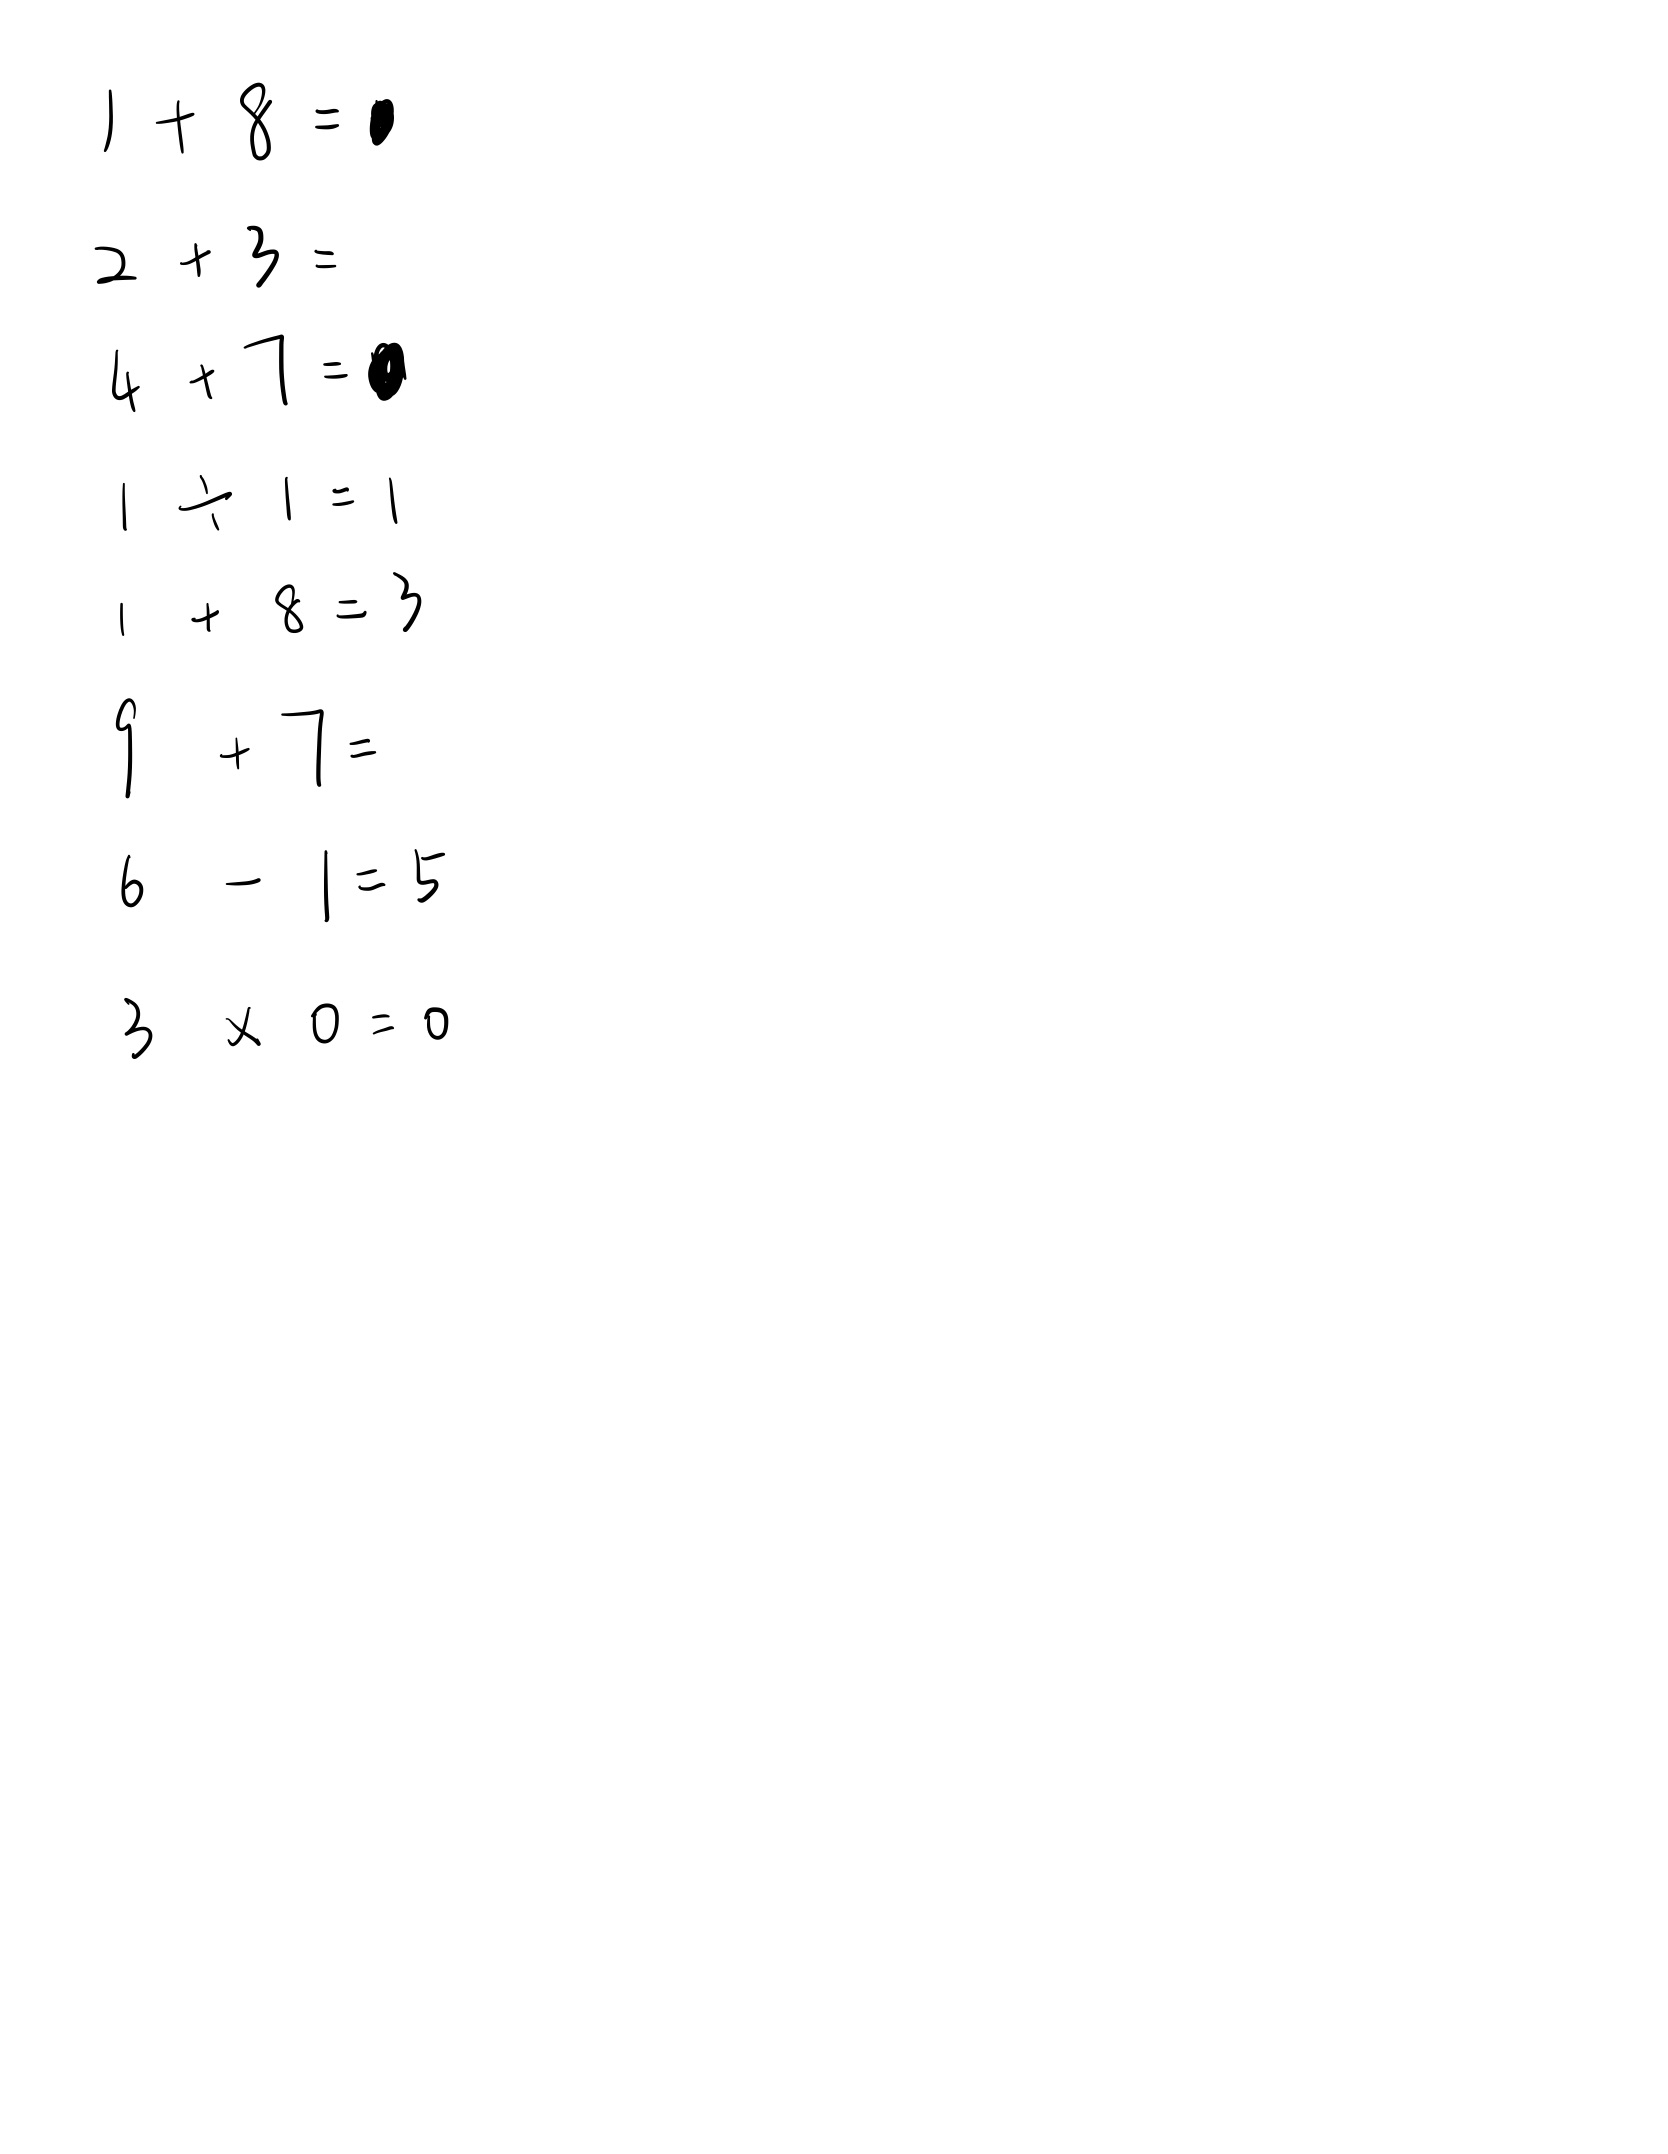 1 + 8 =
2 + 3 =
4 + 7 =
1 ÷ 1 = 1
1 + 8 = 3
9 + 7 =
6 - 1 = 5
3 × 0 = 0